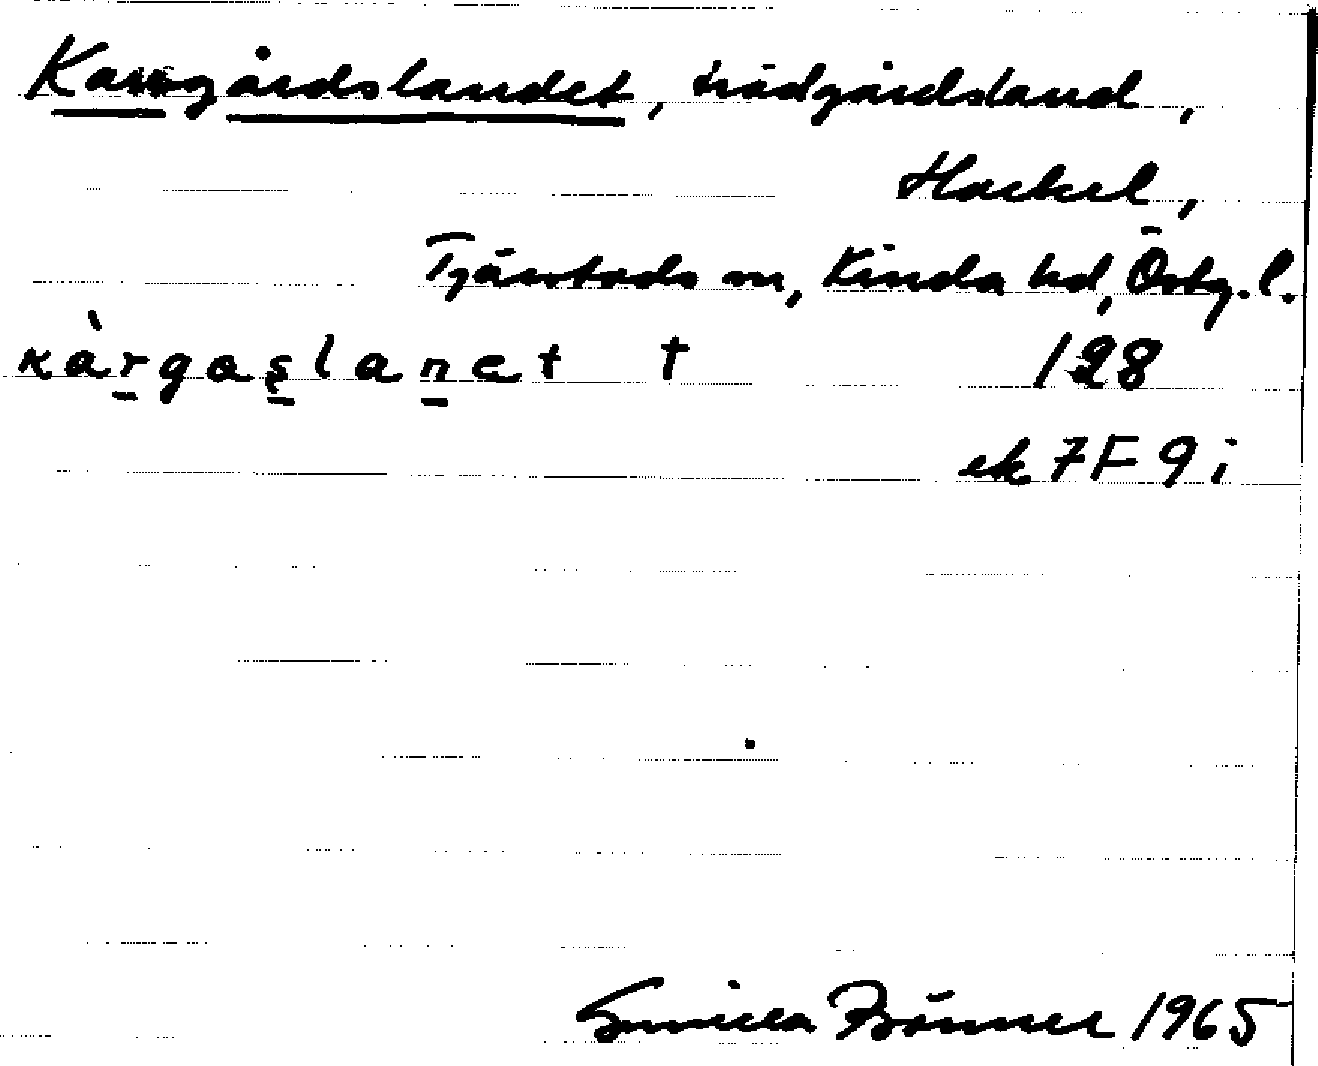 Kargårdslandet, trädgårdsland,
Hackel,
Tjärstads sn, Kinda hd, Östg. l.
kàrgaslanet † 128
ek 7F 9i
Gunilla 1965